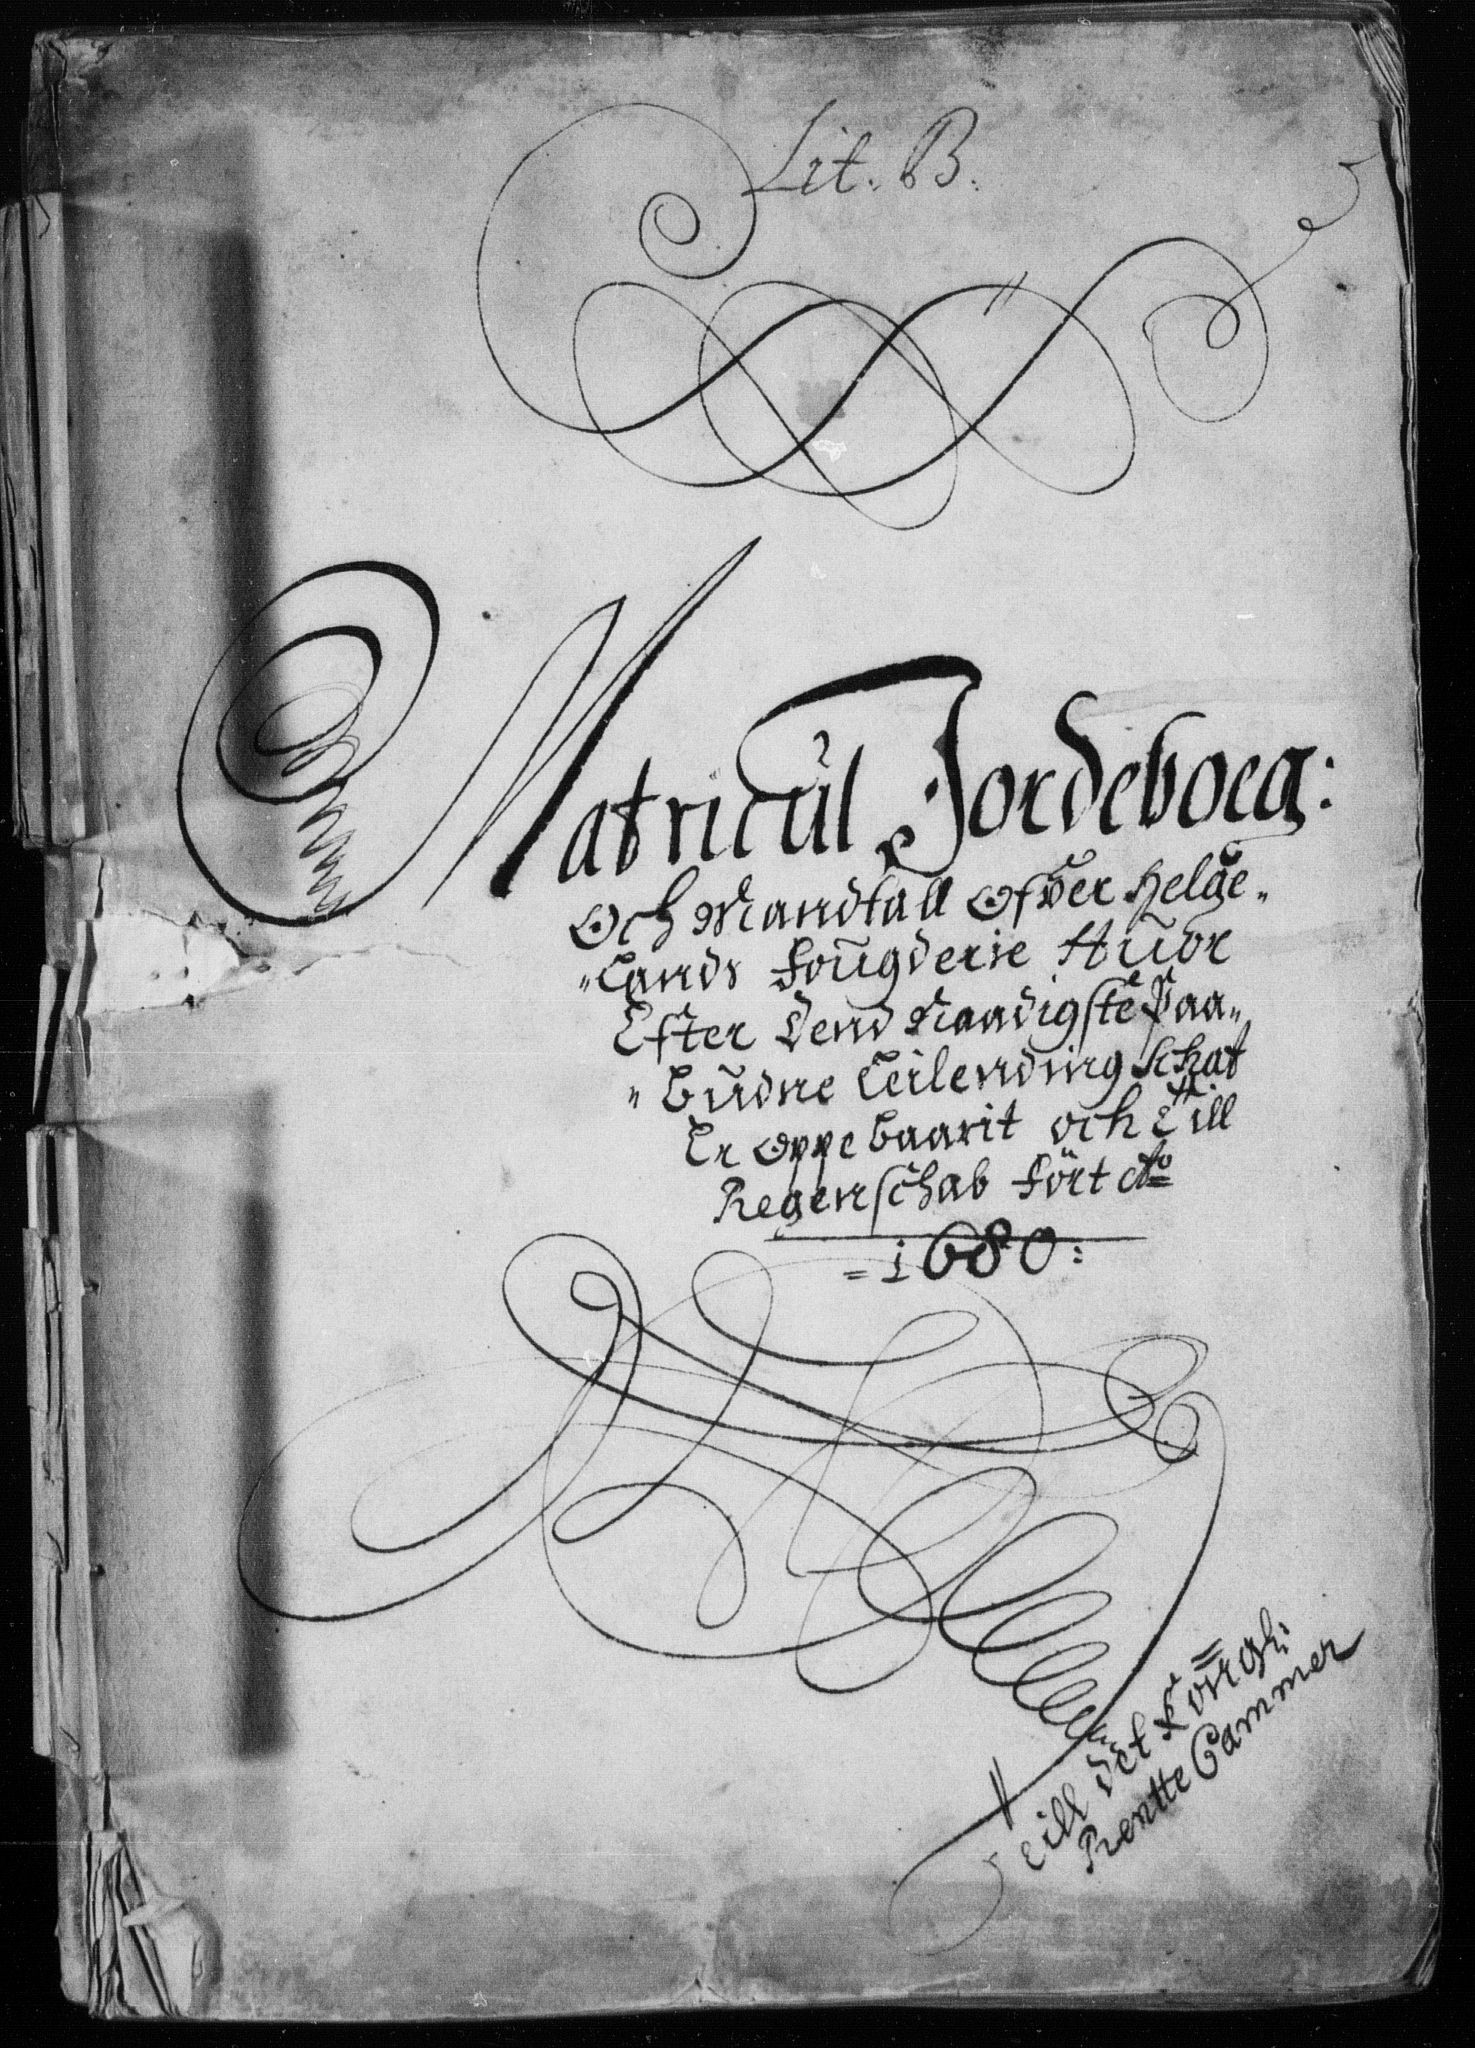 Lit. B.
Matricul Jordeboeg:
Och Mandtall Ofver Helge„
„Lands Fougderie Huor
Efter Dend Naadigste Paa„
„budne Leilending Schat
Er Oppebaarit och Till
Regenschab Fört Ao
= 1680:
Till Det Kongl:
Rentte Cammer